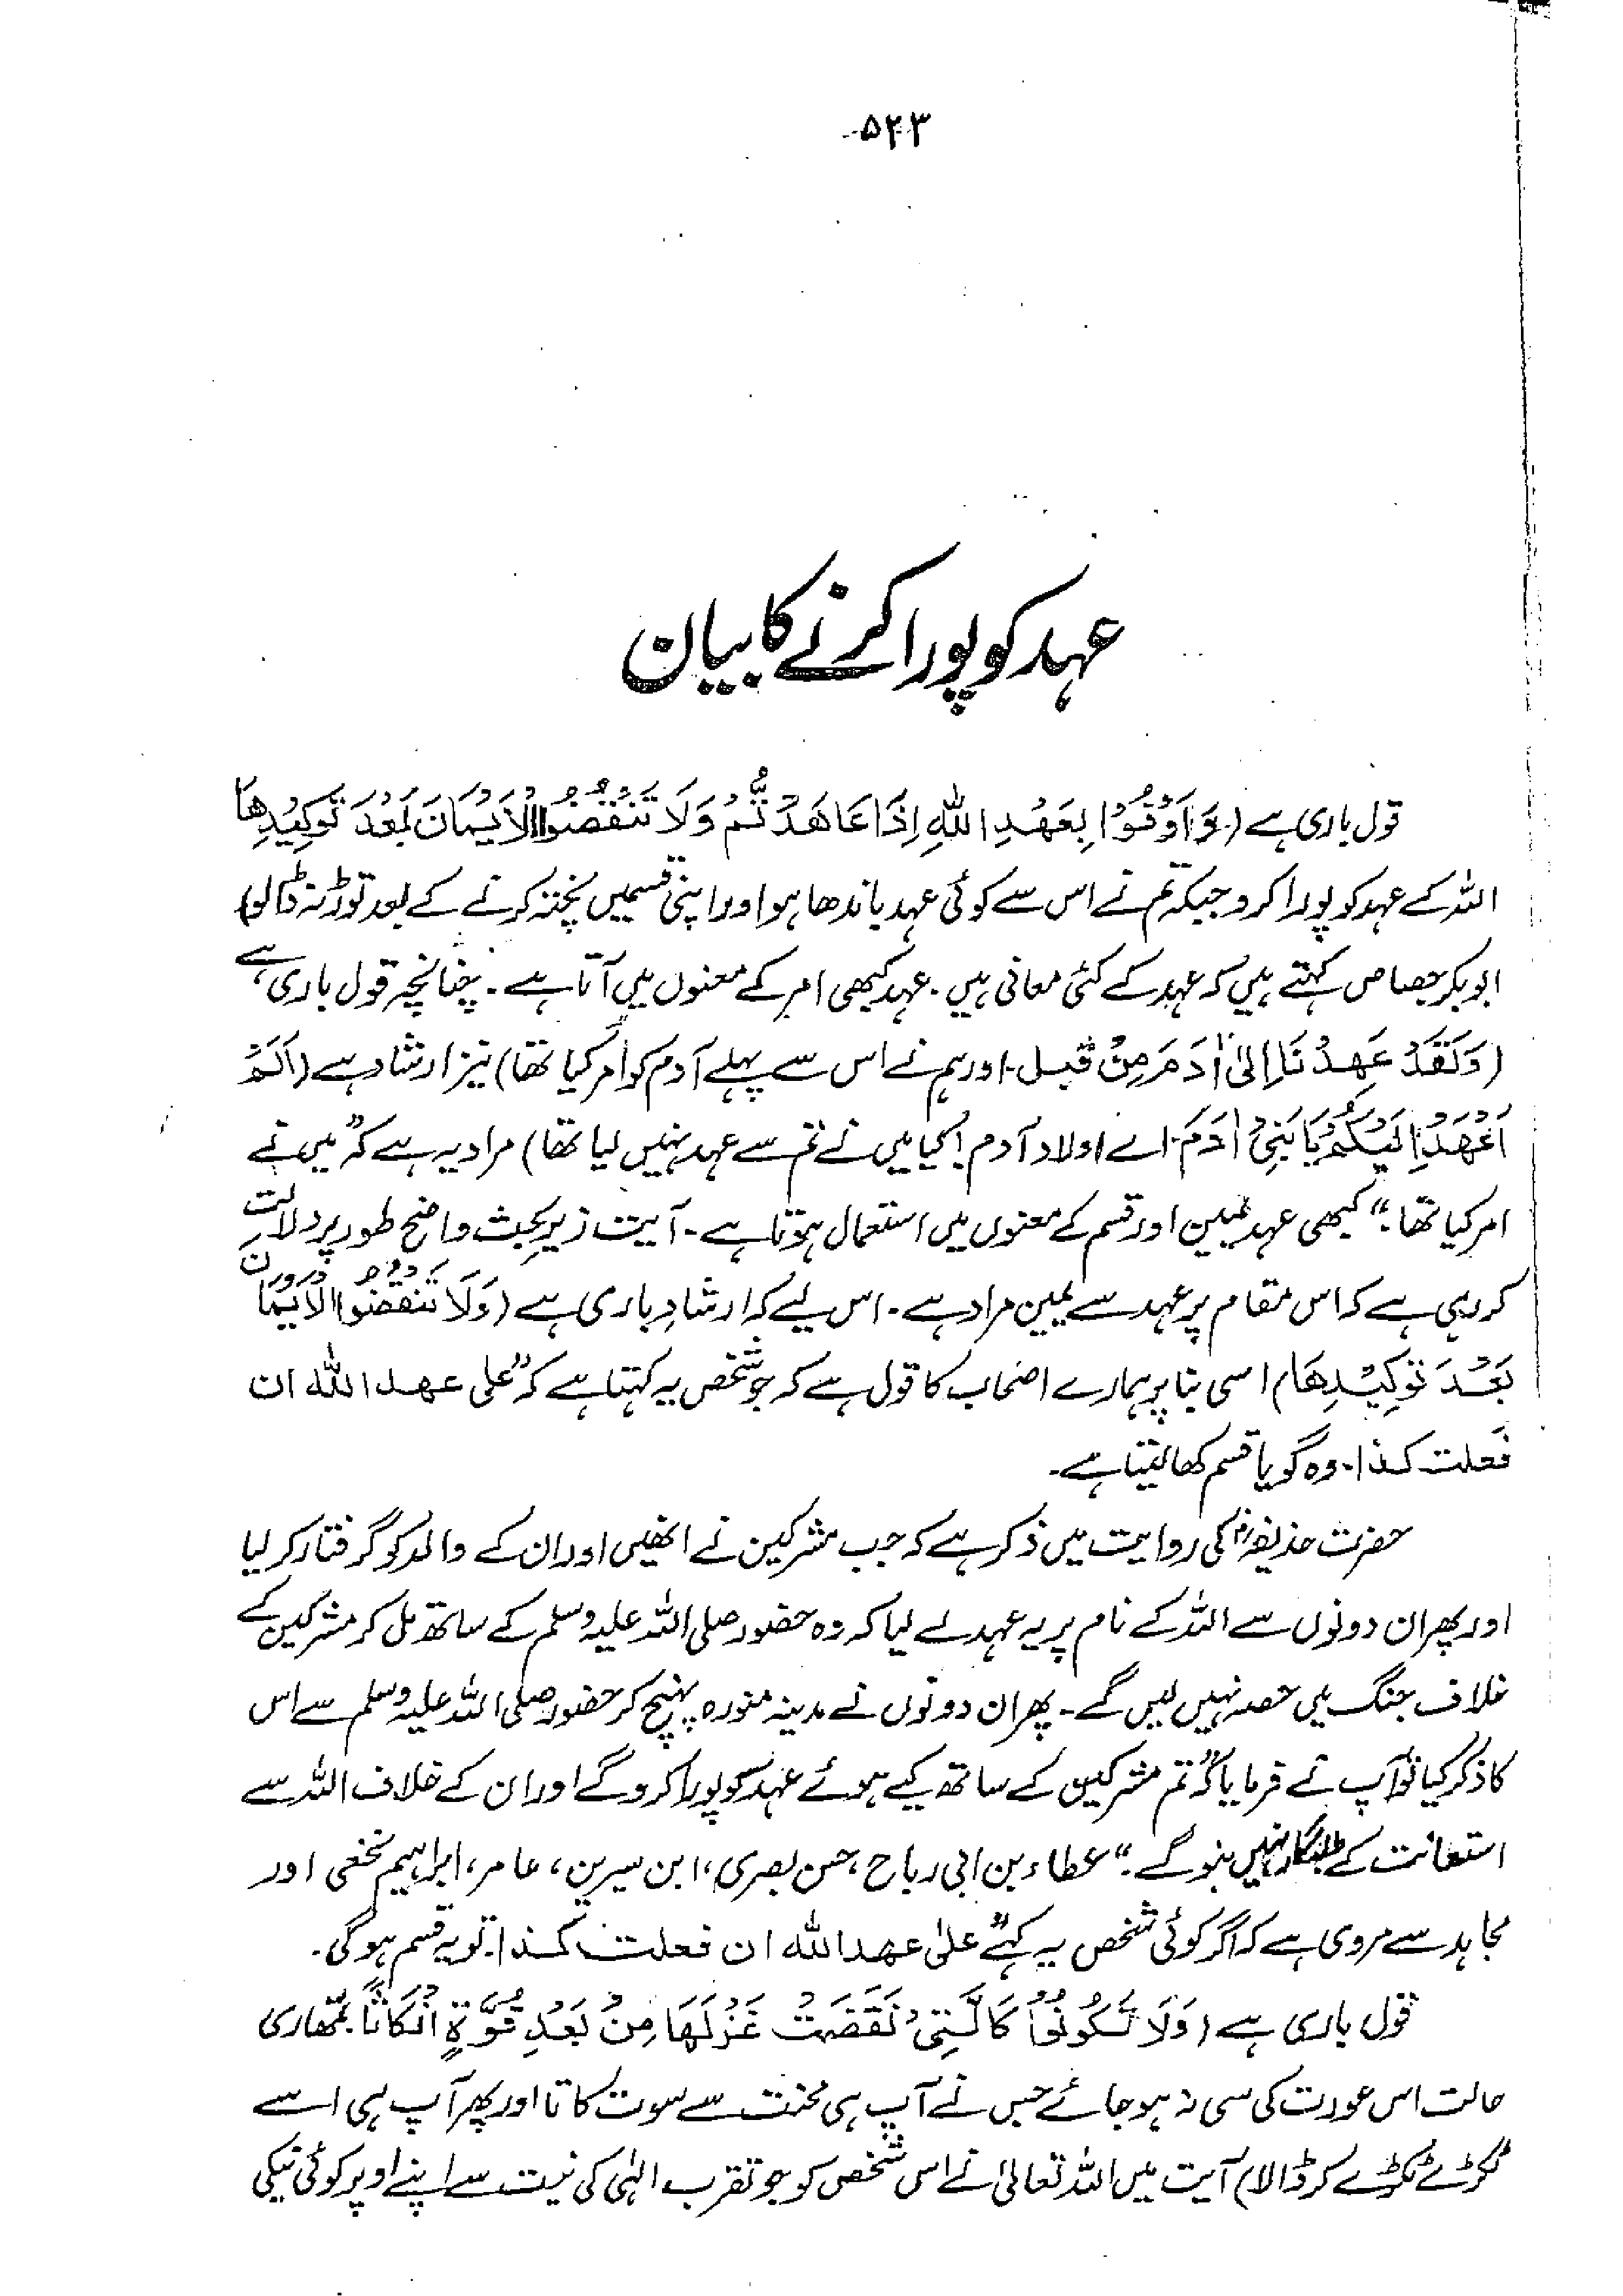 ۵۲۳
عہد کو پورا کرنے کا بیان
قول باری ہے (وَاَوْفُوْا بِعَهْدِ اللّٰهِ اِذَا عَاهَدْتُّمْ وَلَا تَنْقُضُوا الْاَيْمَانَ بَعْدَ تَوْكِيْدِهَا
اللہ کے عہد کو پورا کرو جبکہ تم نے اس سے کوئی عہد باندھا ہو اور اپنی قسمیں پختہ کرنے کے بعد توڑ نہ ڈالو)
ابوبکر جصاص کہتے ہیں کہ عہد کے کئی معانی ہیں۔ عہد کبھی امر کے معنوں میں آتا ہے۔ چنانچہ قول باری ہے
(وَلَقَدْ عَهِدْنَا اِلٰى اٰدَمَ مِنْ قَبْل۔ اور ہم نے اس سے پہلے آدم کو امر کیا تھا) نیز ارشاد ہے (اَلَمْ
اَعْهَدْ اِلَيْكُمْ يَا بَنِيْ اٰدَمَ۔ اے اولاد آدم! کیا میں نے تم سے عہد نہیں لیا تھا) مراد یہ ہے کہ "میں نے
امر کیا تھا۔" کبھی عہد یمین اور قسم کے معنوں میں استعمال ہوتا ہے۔ آیت زیر بحث واضح طور پر دلالت
کر رہی ہے کہ اس مقام پر عہد سے یمین مراد ہے۔ اس لیے کہ ارشادِ باری ہے (وَلَا تَنْقُضُوا الْاَيْمَانَ
بَعْدَ تَوْكِيْدِهَا) اسی بنا پر ہمارے اصحاب کا قول ہے کہ جو شخص یہ کہتا ہے کہ "علی عهد الله ان
فعلت كذا۔ وہ گویا قسم کھا لیتا ہے۔
حضرت حذیفہؓ کی روایت میں ذکر ہے کہ جب مشرکین نے انھیں اور ان کے والد کو گرفتار کر لیا
اور پھر ان دونوں سے اللہ کے نام پر یہ عہد لے لیا کہ وہ حضور صلی اللہ علیہ وسلم کے ساتھ مل کر مشرکین کے
خلاف جنگ میں حصہ نہیں لیں گے۔ پھر ان دونوں نے مدینہ منورہ پہنچ کر حضور صلی اللہ علیہ وسلم سے اس
کا ذکر کیا تو آپ نے فرمایا کہ "تم مشرکین کے ساتھ کیے ہوئے عہد کو پورا کرو گے اور ان کے خلاف اللہ سے
استعانت کے طلبگار نہیں بنو گے۔" عطاء بن ابی رباح، حسن بصری، ابن سیرین، عامر، ابراہیم نخعی اور
مجاہد سے مروی ہے کہ اگر کوئی شخص یہ کہے "علیٰ عهد الله ان فعلت كذا۔ تو یہ قسم ہوگی۔
قول باری ہے (وَلَا تَكُوْنُوْا كَالَّتِيْ نَقَضَتْ غَزْلَهَا مِنْ بَعْدِ قُوَّةٍ اَنْكَاثًا۔ تمھاری
حالت اس عورت کی سی نہ ہو جائے جس نے آپ ہی محنت سے سوت کاتا اور پھر آپ ہی اسے
ٹکڑے ٹکڑے کر ڈالا) آیت میں اللہ تعالیٰ نے اس شخص کو جو تقرب الہٰی کی نیت سے اپنے اوپر کوئی نیکی